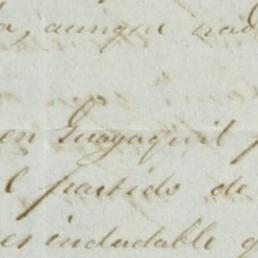 aunque
en Guayaquil
el partido de
es indudable q